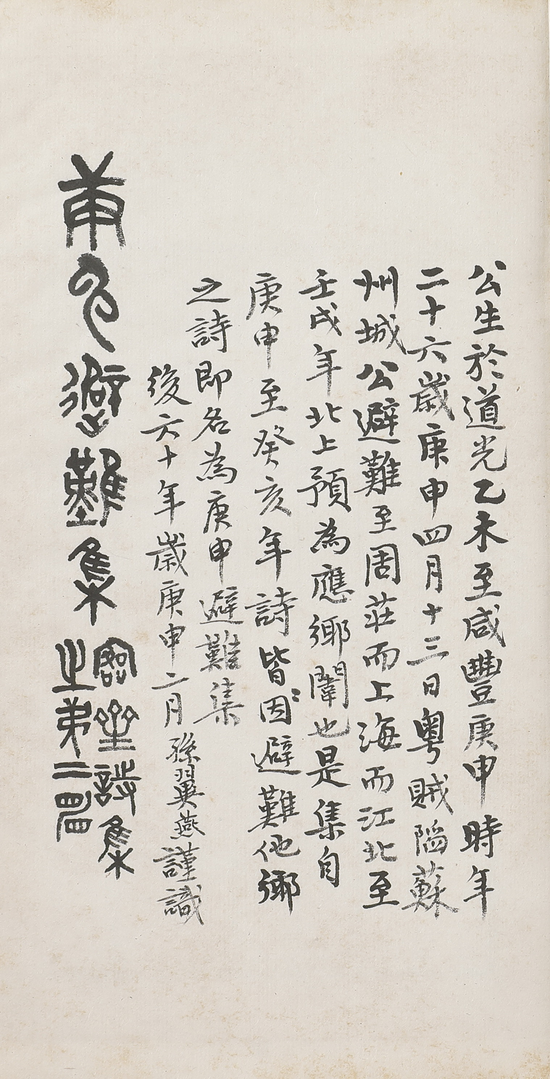 公生於道光乙未至咸豐庚申時年
二十六歲庚申四月十三日粵賊陷蘇
州城公避難至周莊而上海而江北至
壬戌年北上預為應鄉闈也是集自
庚申至癸亥年詩皆因避難他鄉
之詩即名為庚申避難集
後六十年歲庚申二月孫翼燕謹識
庚申避難集
愙齋詩集
之弟二冊